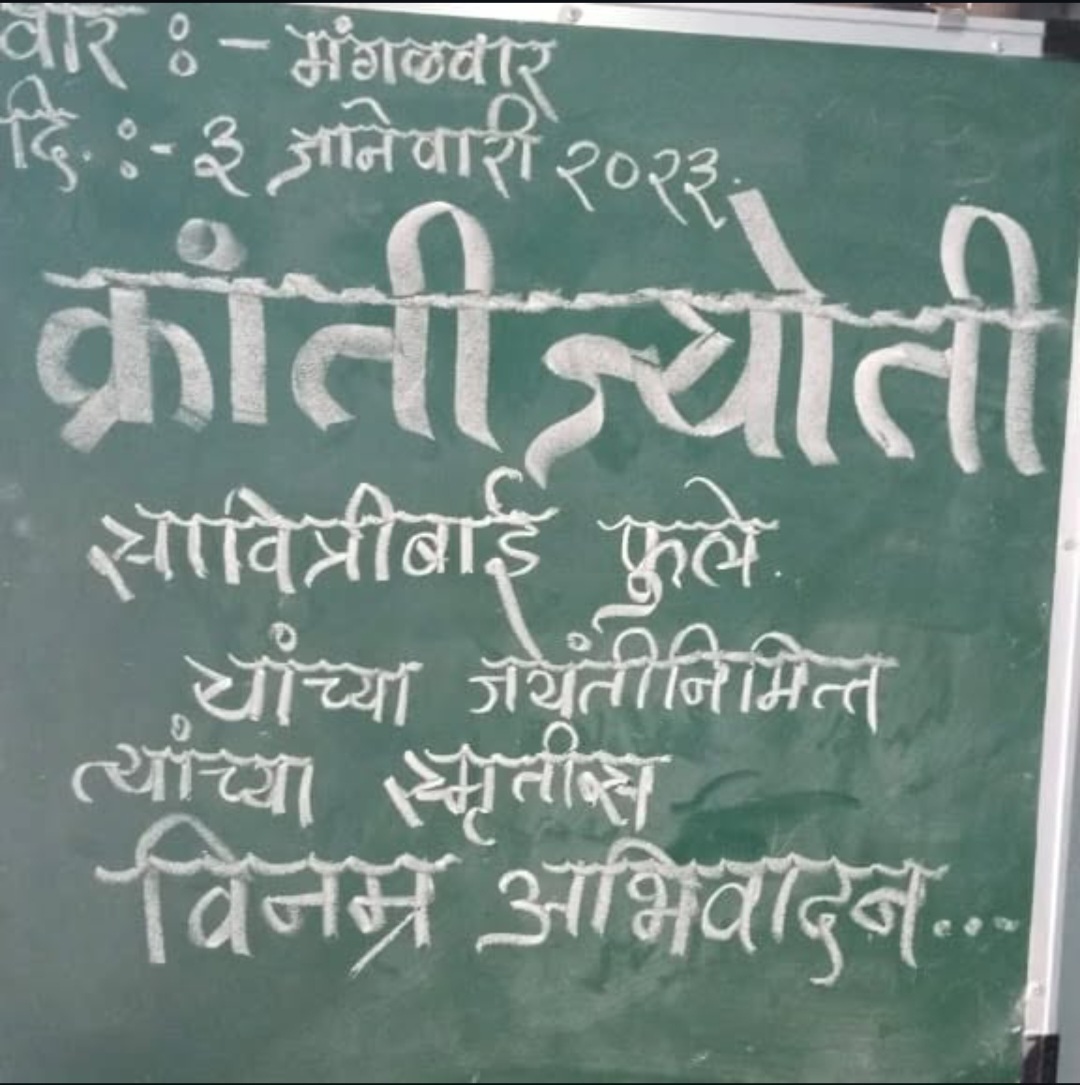 वार :- मंगळवार
दि. :- ३ जानेवारी २०२३.
क्रांतीज्योती
सावित्रीबाई फुले.
यांच्या जयंतीनिमित्त
त्यांच्या स्मृतीस
विनम्र अभिवादन...